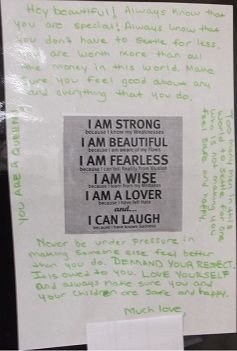 Hey beautiful! Always know that
you are special! Always know that
you don't have to settle for less.
You are worth more than all
the money in this world. Make
sure you feel good about any
and everything that you do.
YOU ARE A QUEEN!
I AM STRONG
because I know my Weaknesses
I AM BEAUTIFUL
because I am aware of my Flaws
I AM FEARLESS
because I can tell Reality from Illusion
I AM WISE
because I learn from my Mistakes
I AM A LOVER
because I have felt Hate
and...
I CAN LAUGH
because I have known Sadness
Too many men in this
world to settle for one
not making you
feel safe and happy.
Never be under pressure in
making someone else feel better
than you do. DEMAND YOUR RESPECT.
It is owed to you. LOVE YOURSELF
and always make sure you and
your children are safe and happy.
Much love